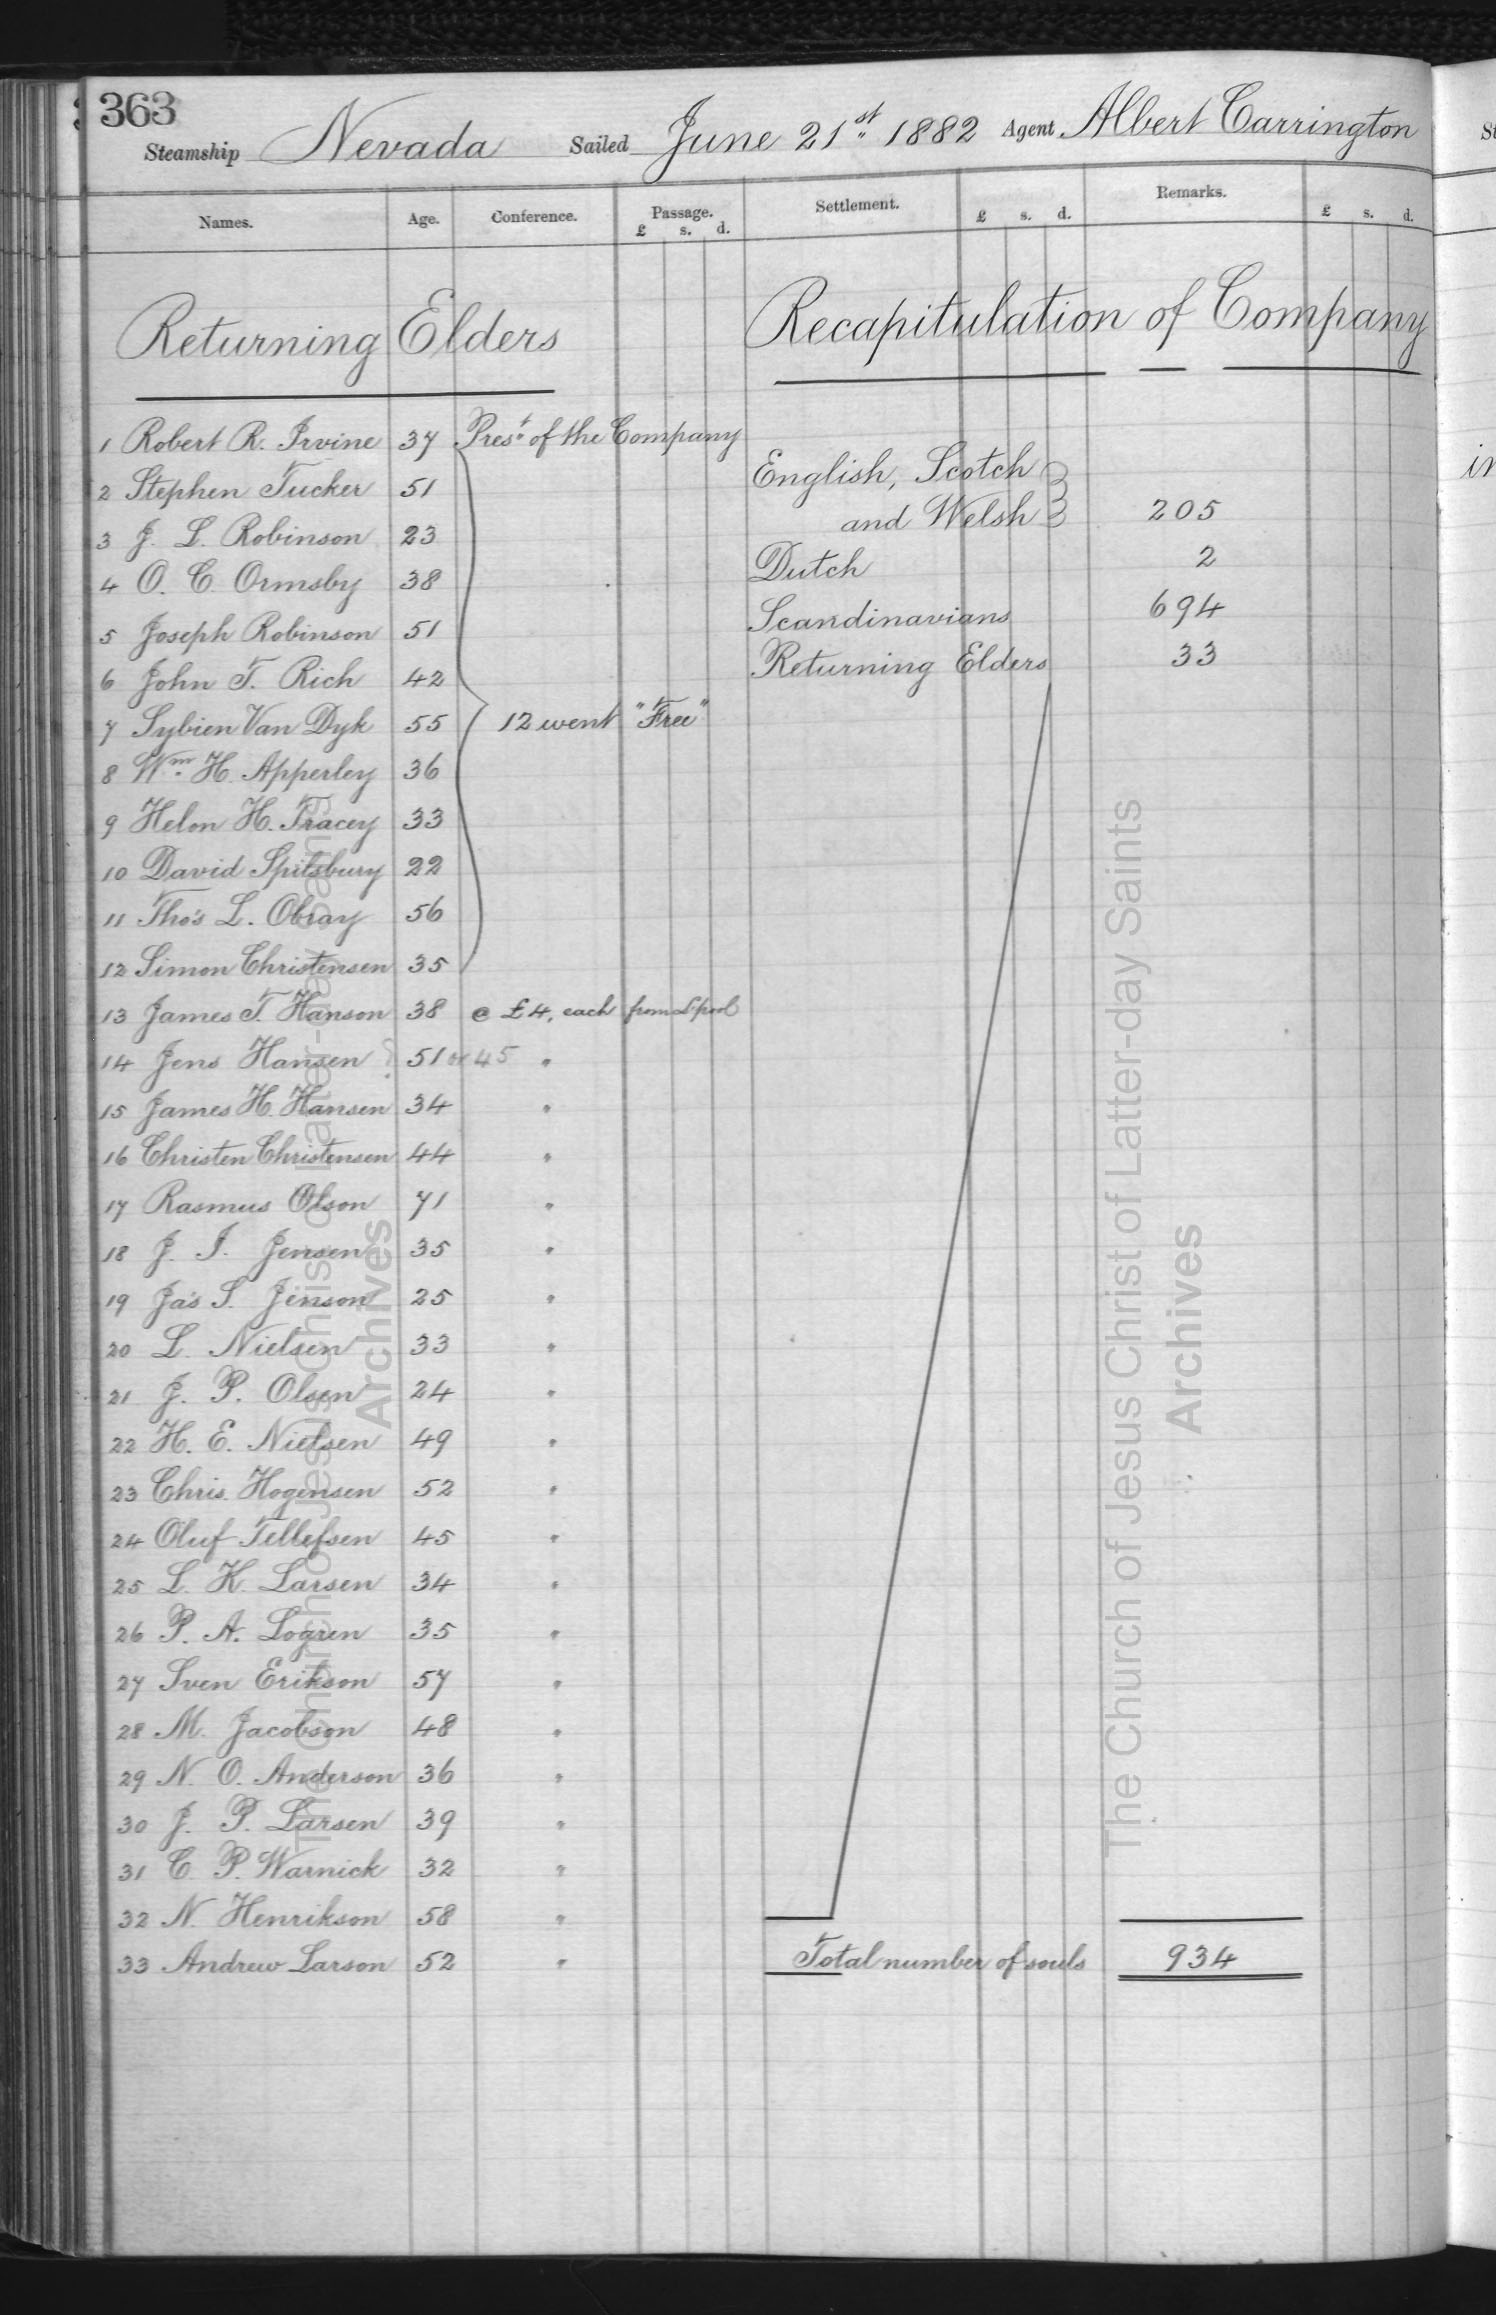 363
Steamship Nevada Sailed June 21st 1882 Agent Albert Carrington
Names. Age. Conference. Passage. Settlement. £ s. d. Remarks. £ s. d.
£ s. d.
Returning Elders
1 Robert R. Irvine 37 Prest of the Company
2 Stephen Tucker 51
3 J. L. Robinson 23
4 O. C. Ormsby 38
5 Joseph Robinson 51
6 John T. Rich 42
7 Sybien Van Dyk 55 12 went "Free"
8 Wm H. Apperley 36
9 Helon H. Tracey 33
10 David Spilsbury 22
11 Tho's L. Obray 56
12 Simon Christensen 35
13 James T. Hanson 38 @ £4, each from L'pool
14 Jens Hansen ? 51 or 45 "
15 James H. Hansen 34 "
16 Christen Christensen 44 "
17 Rasmus Olson 71 "
18 J. I. Jensen 35 "
19 Ja's S. Jenson 25 "
20 L. Nielsen 33 "
21 J. P. Olsen 24 "
22 H. E. Nielsen 49 "
23 Chris. Hogensen 52 "
24 Oluf Tellefsen 45 "
25 L. K. Larsen 34 "
26 P. A. Logren 35 "
27 Sven Erikson 57 "
28 M. Jacobson 48 "
29 N. O. Anderson 36 "
30 J. P. Larsen 39 "
31 C. P. Warnick 32 "
32 N. Henrikson 58 "
33 Andrew Larson 52 "
Recapitulation of Company
English, Scotch
and Welsh 205
Dutch 2
Scandinavians 694
Returning Elders 33
Total number of souls 934
The Church of Jesus Christ of Latter-day Saints
Archives
The Church of Jesus Christ of Latter-day Saints
Archives
St
in